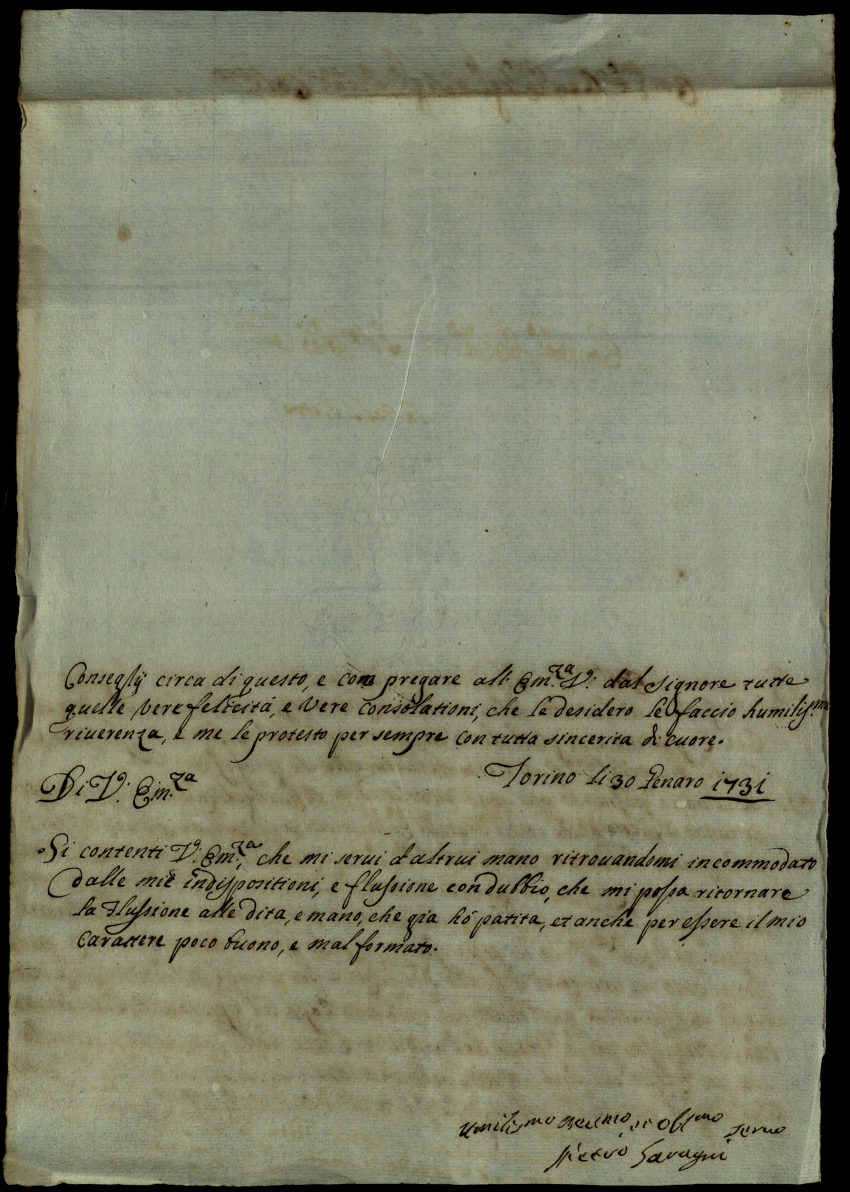 Conseglij circa di questo, e con pregare all' Em.za V. dal Signore tutte
quelle vere felicitá, e vere consolationi, che le desidero le faccio humilis.ma
riverenza, e me le protesto per sempre con tutta sincerita di cuore.
Torino li 30 Genaro 1731
Di V. Em.za
Si contenti V. Em.za che mi servi d'altrui mano ritrovandomi incommodato
dalle mie indispositioni, e flussione con dubbio, che mi possa ritornare
la Flussione alle dita, e mano, che gia hò patita, et anche per essere il mio
Carattere poco buono, e mal formato.
Umilis.mo et Obl.mo Servo
Pietro